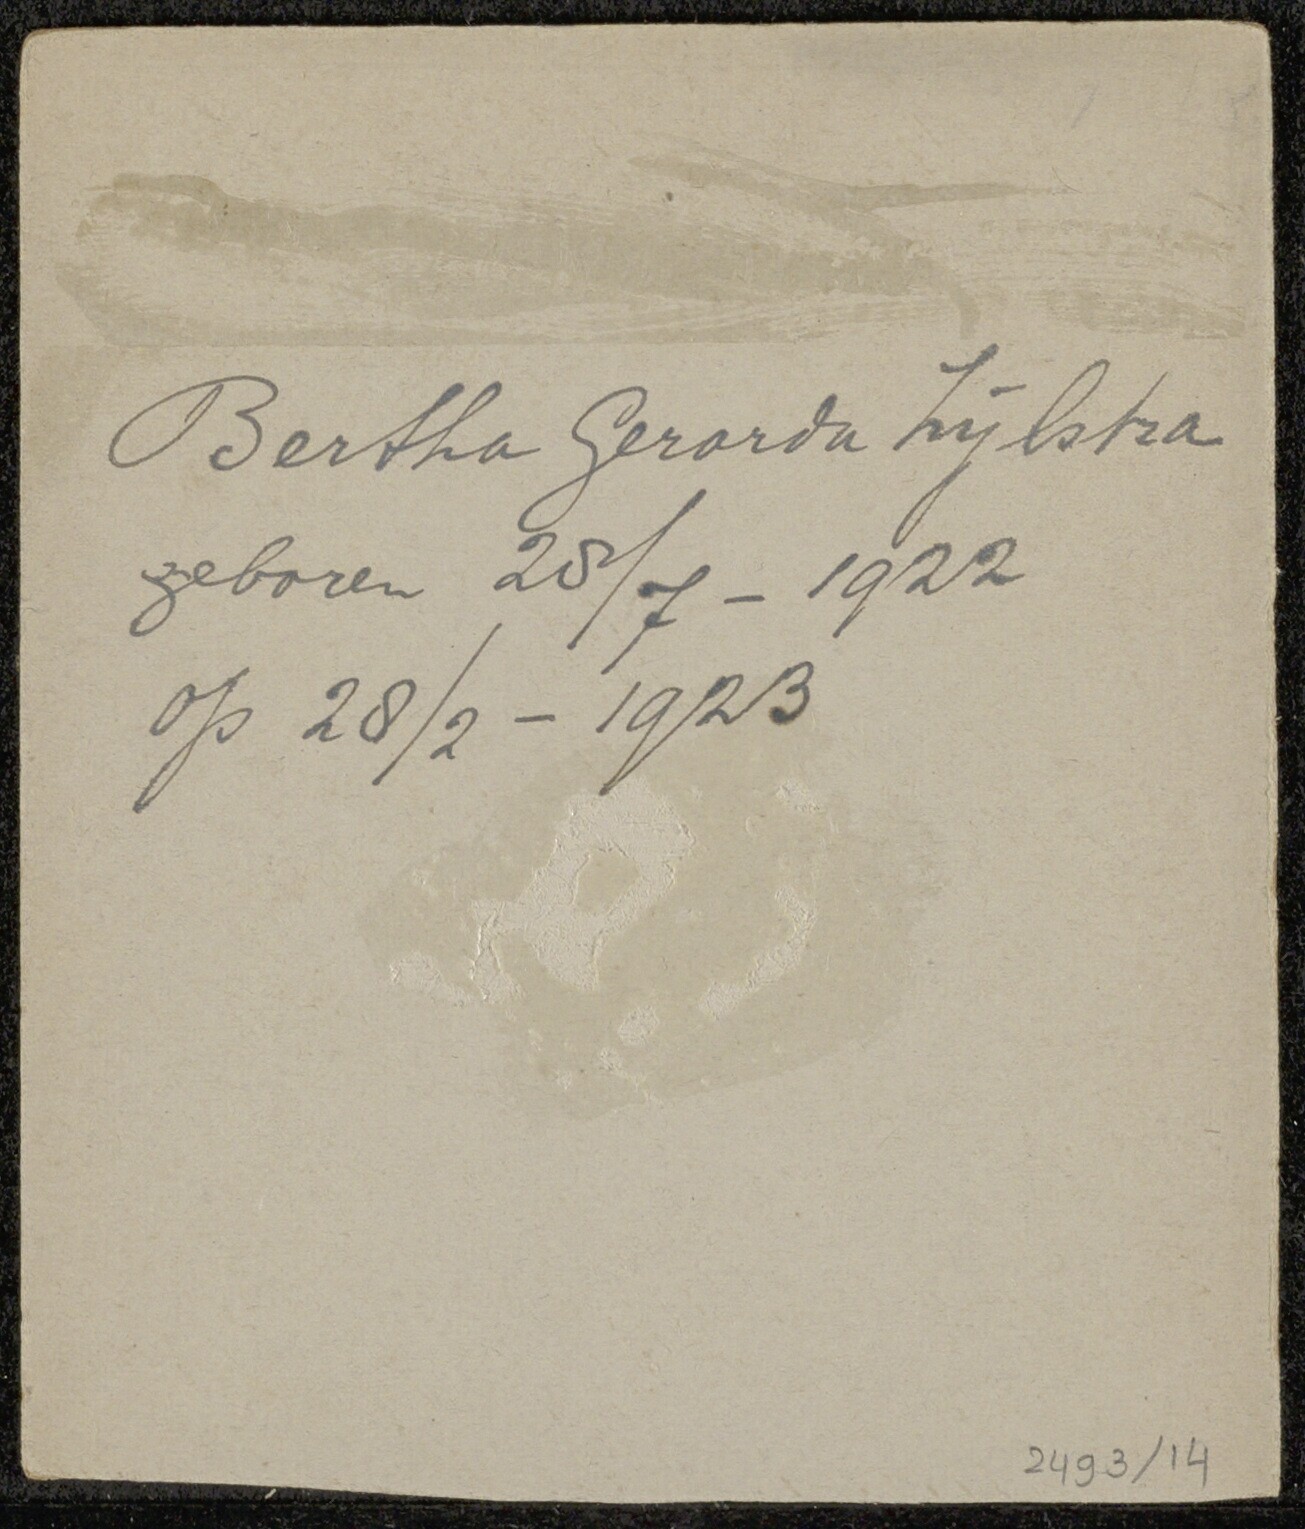 Bertha Gerarda Zijlstra
geboren 28/7 - 1922
op 28/2 - 1923
2493/14